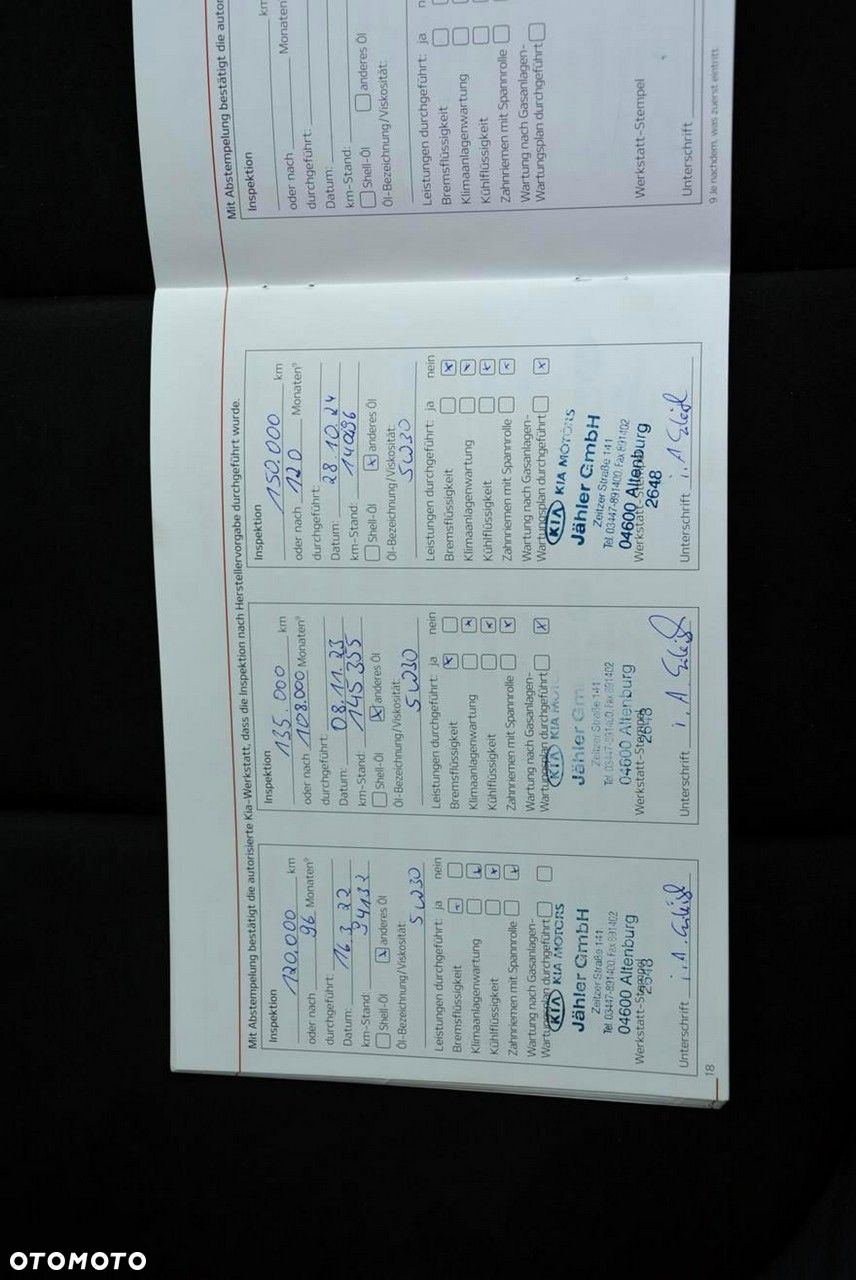 Mit Abstempelung bestätigt die autorisierte Kia-Werkstatt, dass die Inspektion nach Herstellervorgabe durchgeführt wurde.
Inspektion
120.000 km
oder nach 96 Monaten⁹
durchgeführt:
Datum: 16.3.22
km-Stand: 94132
Shell-Öl x anderes Öl
Öl-Bezeichnung/Viskosität:
5W30
Leistungen durchgeführt: ja nein
Bremsflüssigkeit x
Klimaanlagenwartung x
Kühlflüssigkeit x
Zahnriemen mit Spannrolle x
Wartung nach Gasanlagen-
Wartungsplan durchgeführt
KIA KIA MOTORS
Jähler GmbH
Zeitzer Straße 141
Tel. 03447-891400, Fax 891402
04600 Altenburg
Werkstatt-Stempel
2648
Unterschrift i.A.
18
Inspektion
135.000 km
oder nach 108.000 Monaten⁹
durchgeführt:
Datum: 08.11.23
km-Stand: 145355
Shell-Öl x anderes Öl
Öl-Bezeichnung/Viskosität:
5W30
Leistungen durchgeführt: ja nein
Bremsflüssigkeit x
Klimaanlagenwartung x
Kühlflüssigkeit x
Zahnriemen mit Spannrolle x
Wartung nach Gasanlagen-
Wartungsplan durchgeführt x
KIA KIA MOT
Jähler Gm
Zeitzer Straße 141
Tel. 03447-891400, Fax 891402
04600 Altenburg
Werkstatt-Stempel
2648
Unterschrift i.A.
Inspektion
150.000 km
oder nach 120 Monaten⁹
durchgeführt:
Datum: 28.10.24
km-Stand:
Shell-Öl x anderes Öl
Öl-Bezeichnung/Viskosität:
5W30
Leistungen durchgeführt: ja nein
Bremsflüssigkeit x
Klimaanlagenwartung x
Kühlflüssigkeit x
Zahnriemen mit Spannrolle x
Wartung nach Gasanlagen-
Wartungsplan durchgeführt x
KIA KIA MOTORS
Jähler GmbH
Zeitzer Straße 141
Tel. 03447-891400, Fax 891402
04600 Altenburg
Werkstatt-Stempel
2648
Unterschrift i.A.
Mit Abstempelung bestätigt die autor
Inspektion
km
oder nach Monaten
durchgeführt:
Datum:
km-Stand:
Shell-Öl anderes Öl
Öl-Bezeichnung/Viskosität:
Leistungen durchgeführt: ja n
Bremsflüssigkeit
Klimaanlagenwartung
Kühlflüssigkeit
Zahnriemen mit Spannrolle
Wartung nach Gasanlagen-
Wartungsplan durchgeführt
Werkstatt-Stempel
Unterschrift
9 Je nachdem, was zuerst eintritt
OTOMOTO